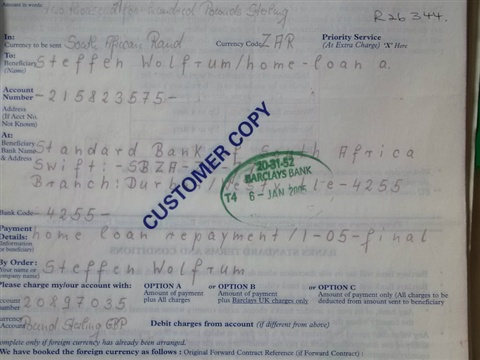 Amount in words
Pounds Sterling
R26 344.
In: South African Rand Currency Code ZAR Priority Service
Currency to be sent (At Extra Charge) 'X' Here
To:
Beneficiary Steffen Wolfrum/home-loan a.
(Name)
Account
Number -215823575-
Address
(If Acct No.
Not Known)
At:
Beneficiary Standard Bank of South Africa
Bank Name
& Address Swift:-SBZA-
Branch: 4255
CUSTOMER COPY
20-31-52
BARCLAYS BANK
T4 6-JAN 2005
Bank Code -4255-
Payment
Details: home loan repayment/1-05-final
(Information
for beneficiary)
By Order:
Your name or Steffen Wolfrum
company name)
Please charge my/our account with: OPTION A or OPTION B or OPTION C
Account 20897035 Amount of payment Amount of payment Amount of payment only (All charges to be
number plus All Charges plus Barclays UK charges only deducted from amount sent to beneficiary
Currency
Account Pound Sterling GBP Debit charges from account (if different from above)
Complete only if foreign currency has already been arranged.
We have booked the foreign currency as follows : Original Forward Contract Reference (if Forward Contract) :